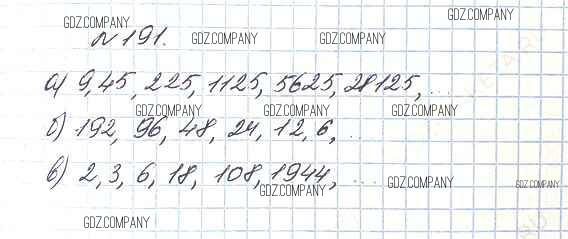 GDZ.COMPANY
GDZ.COMPANY
№191.
GDZ.COMPANY
GDZ.COMPANY
а) 9, 45, 225, 1125, 5625, 28125, ...
GDZ.COMPANY
GDZ.COMPANY
GDZ.COMPANY
б) 192, 96, 48, 24, 12, 6, ...
в) 2, 3, 6, 18, 108, 1944, ...
GDZ.COMPANY
GDZ.COMPANY
GDZ.COMPANY
GDZ.COMPANY